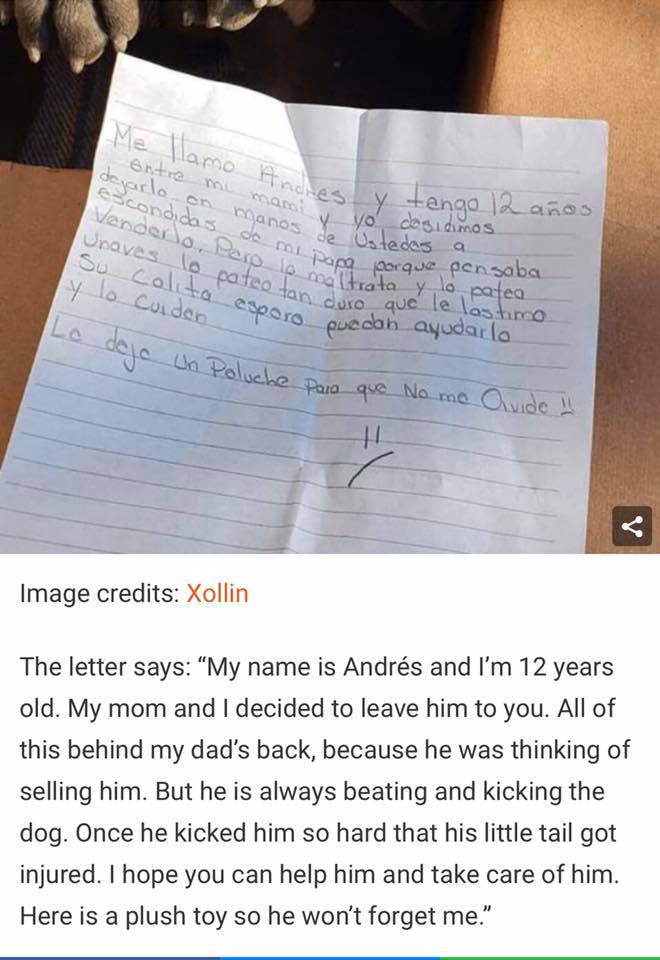 Me llamo Andres y tengo 12 años
entre mi mami y yo desidimos
dejarlo en manos de Ustedes a
escondidas de mi papa porque pensaba
Venderlo, Pero lo maltrata y lo patea
Unaves lo pateo tan duro que le lastimo
Su Colita espero puedan ayudarlo
y lo Cuiden
Le dejo Un Peluche Para que No me Olvide !!
Image credits: Xollin
The letter says: “My name is Andrés and I’m 12 years
old. My mom and I decided to leave him to you. All of
this behind my dad’s back, because he was thinking of
selling him. But he is always beating and kicking the
dog. Once he kicked him so hard that his little tail got
injured. I hope you can help him and take care of him.
Here is a plush toy so he won’t forget me.”